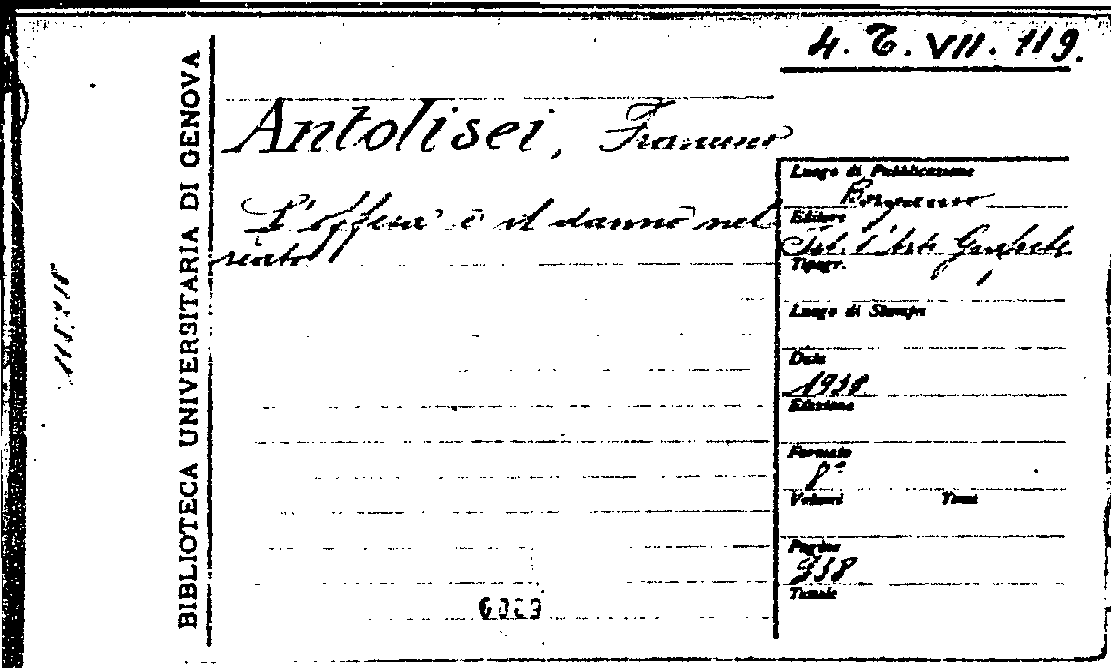 4. T. VII. 119.
BIBLIOTECA UNIVERSITARIA DI GENOVA
Antolisei, Francesco
L'offesa e il danno nel
reato
Luogo di Pubblicazione
Bergamo
Editore
Ist. d'Arti Grafiche
Tipogr.
Luogo di Stampa
Data
1930
Edizione
Formato
8°
Volumi Tomi
Pagine
Tavole